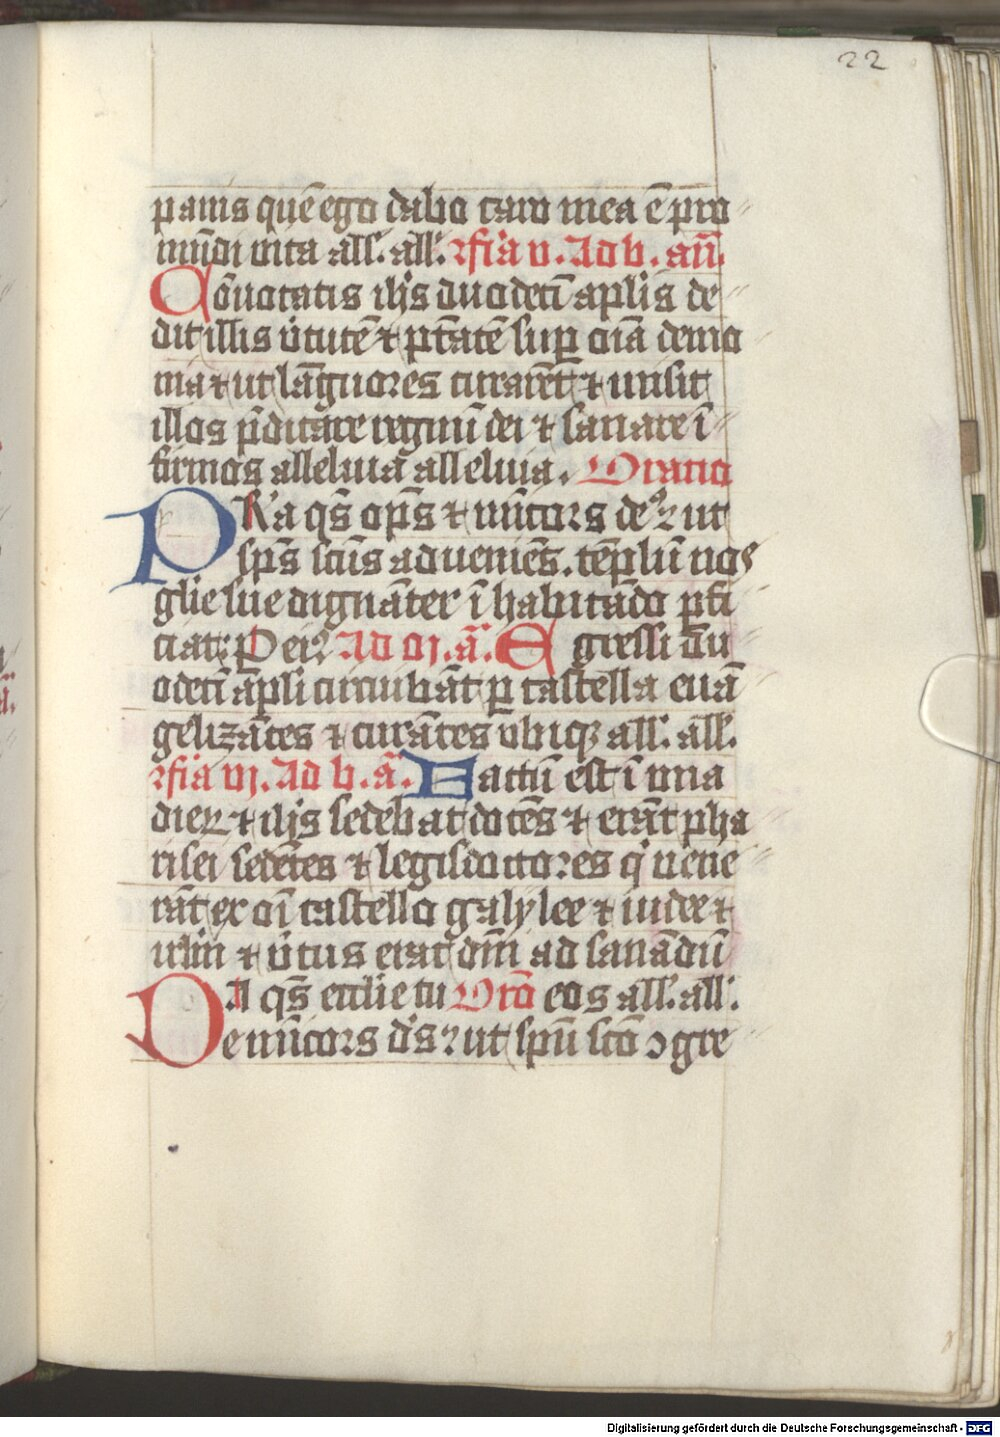 22
panis quē ego dabo caro mea ē pro
mūdi vita all'. all'. ꝛfia v. Ad b. añ.
Cōuocatis ihs duodecī aplis de
dit illis v̾tutē ⁊ p̄tatē sup oīa demo
nia ⁊ ut lāguores curarēt ⁊ misit
illos p̄dicare regnū dei ⁊ sanare ī
firmos alleluia alleluia. Oratio
PRa qs̄ op̄s ⁊ mīcors deꝰ ꝛ ut
sp̄s scūs adueniēs. tēplū nos
glīe sue dignāter īhabitādo ꝑfi
ciat. Per. Ad m. ā. Egressi du
odecī apli circuibāt ꝑ castella euā
gelizātes ⁊ curātes vbiqꝫ all'. all'.
ꝛfia vj. Ad b. ā. Factū est ī una
dieꝝ ⁊ ihs sedebat docēs ⁊ erāt pha
risei sedētes ⁊ legisdoctores q' uene
rāt ex oī castello galylee ⁊ iudee ⁊
irlm ⁊ v̾tus erat dn̄i ad sanādū
DA qs̄ ecclie tu Orō eos all'. all'.
e mīcors d's ꝛ ut spū scō ꝯgre
Digitalisierung gefördert durch die Deutsche Forschungsgemeinschaft - DFG